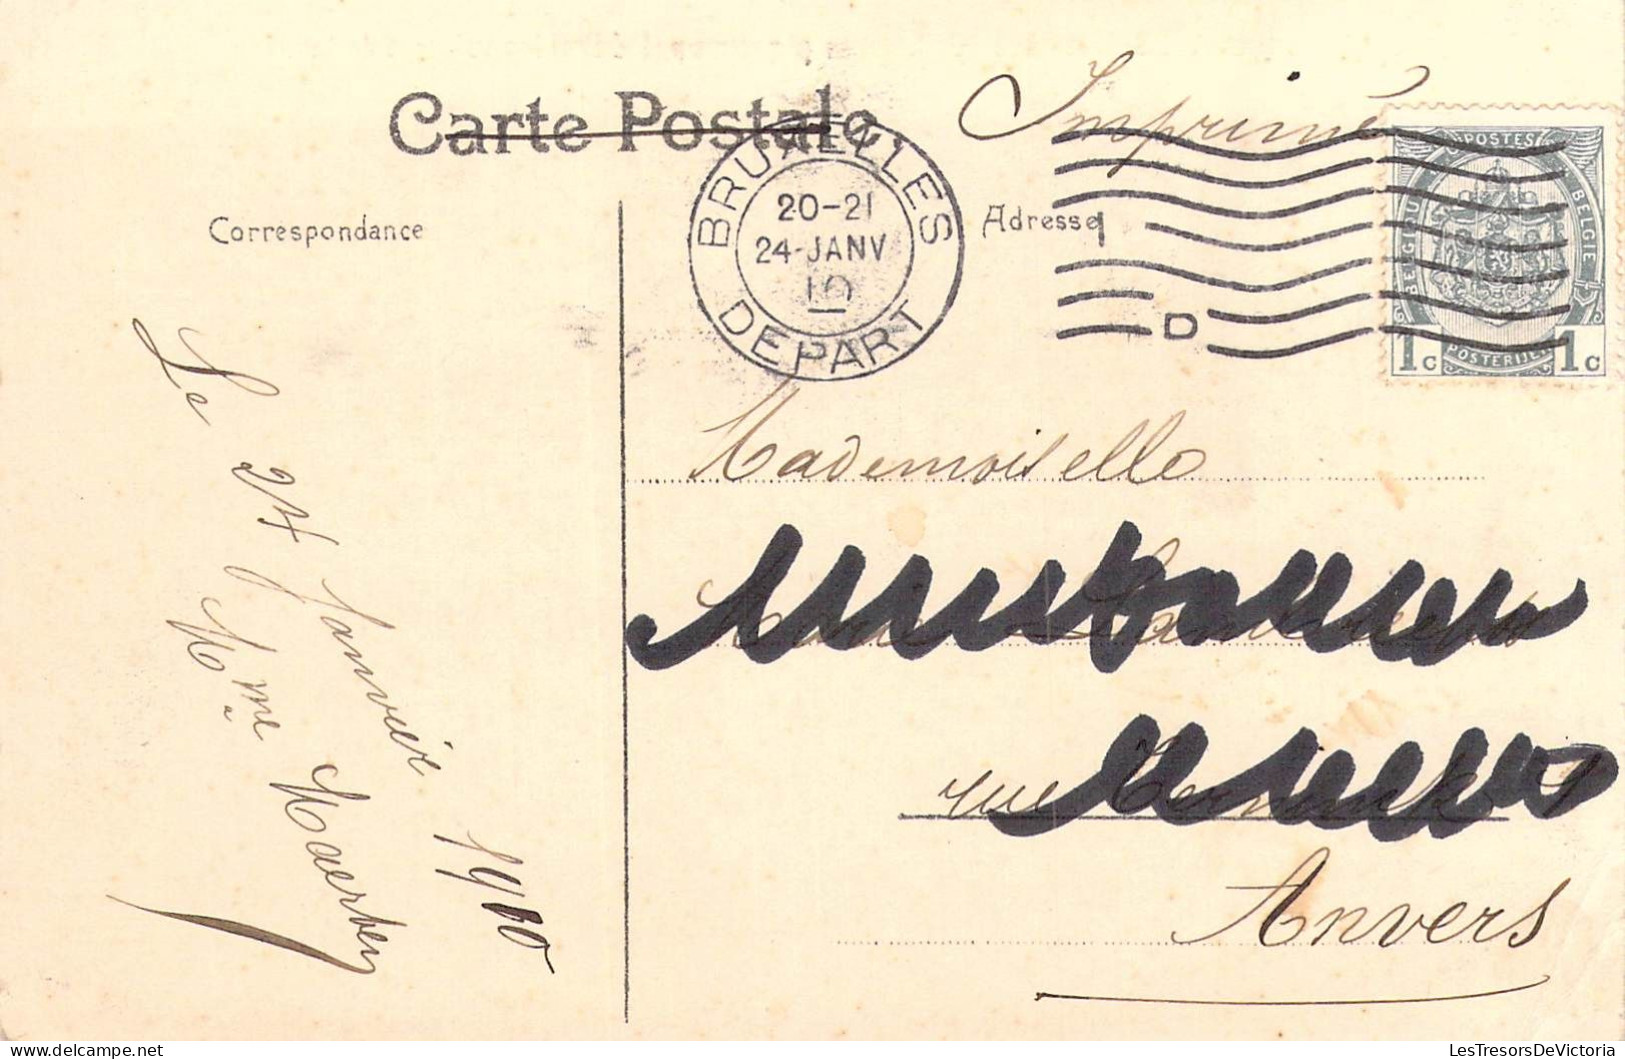 Carte Postale.
Imprimé
BRUXELLES
20-21
24-JANV
10
DEPART
D
POSTES
BELGIQUE
BELGIE
1c
POSTERIJEN
1c
Correspondance
Adresse
Le 24 Janvier 1910
Mme
Mademoiselle
rue
Anvers
LesTresorsDeVictoria